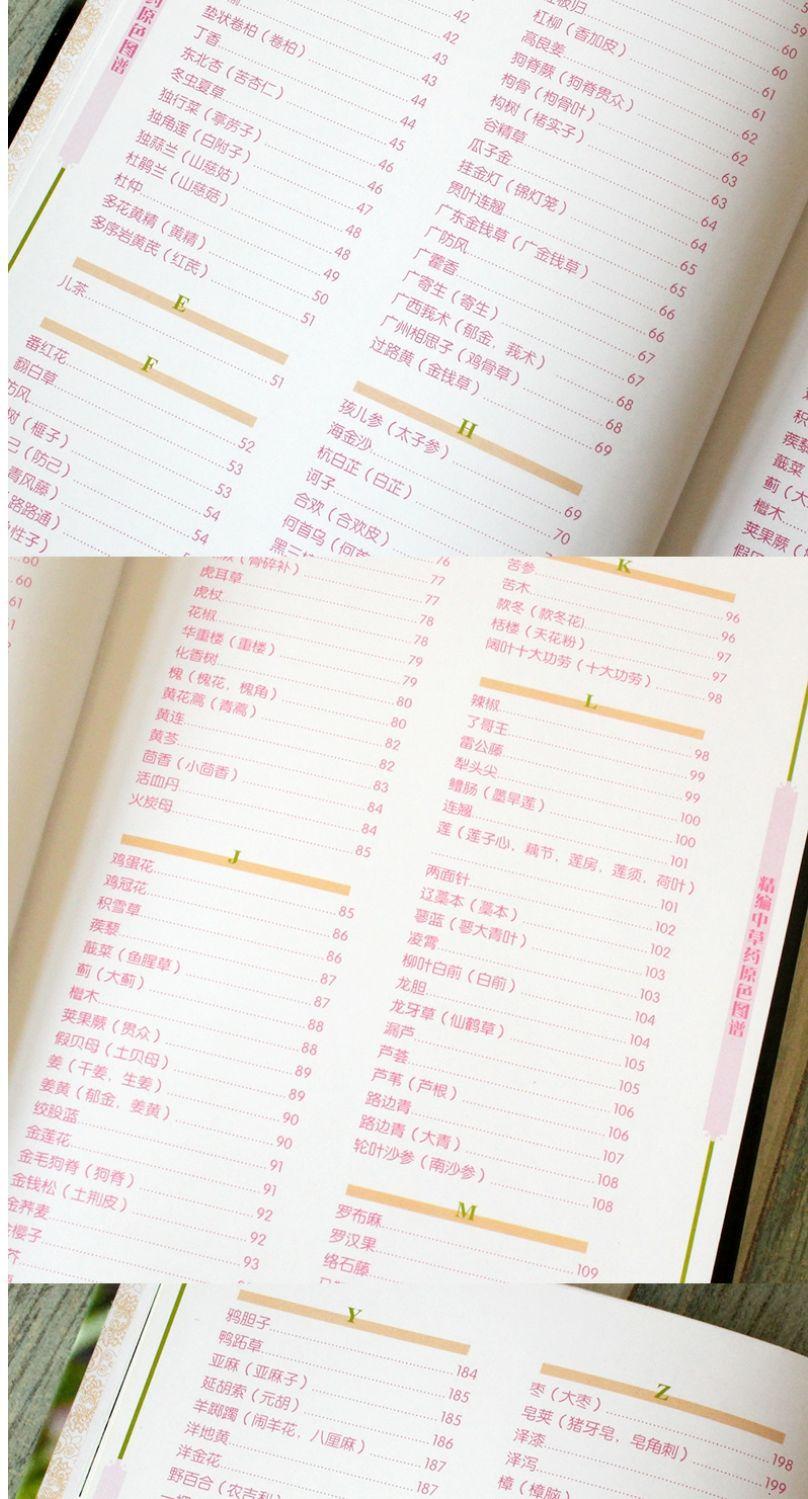 药原色图谱
42
42
43
43
垫状卷柏（卷柏）44
丁香44
东北杏（苦杏仁）45
冬虫夏草46
独行菜（葶苈子）46
独角莲（白附子）47
独蒜兰（山慈姑）48
杜鹃兰（山慈菇）48
杜仲49
多花黄精（黄精）50
多序岩黄芪（红芪）51
E
儿茶51
F
番红花52
翻白草53
防风53
树（榧子）54
己（防己）54
青风藤）
路路通）
性子）
59
60
60
板归61
杠柳（香加皮）61
高良姜62
狗脊蕨（狗脊贯众）62
枸骨（枸骨叶）63
构树（楮实子）63
谷精草64
瓜子金64
挂金灯（锦灯笼）65
贯叶连翘65
广东金钱草（广金钱草）66
广防风66
广藿香67
广寄生（寄生）67
广西莪术（郁金，莪术）68
广州相思子（鸡骨草）68
过路黄（金钱草）69
H
孩儿参（太子参）69
海金沙70
杭白芷（白芷）
诃子
合欢（合欢皮）
何首乌（何首
黑三
积
蒺藜
蕺菜
蓟（大
檵木
荚果蕨
假贝
60
61
61
76
（骨碎补）77
虎耳草77
虎杖78
花椒78
华重楼（重楼）79
化香树79
槐（槐花，槐角）80
黄花蒿（青蒿）80
黄连82
黄芩82
茴香（小茴香）83
活血丹84
火炭母84
85
J
鸡蛋花85
鸡冠花86
积雪草86
蒺藜87
蕺菜（鱼腥草）87
蓟（大蓟）88
檵木88
荚果蕨（贯众）89
假贝母（土贝母）89
姜（干姜，生姜）90
姜黄（郁金，姜黄）90
绞股蓝91
金莲花91
金毛狗脊（狗脊）92
金钱松（土荆皮）92
金荞麦93
樱子
K
苦参96
苦木96
款冬（款冬花）97
栝楼（天花粉）97
阔叶十大功劳（十大功劳）98
L
辣椒98
了哥王99
雷公藤99
犁头尖100
鳢肠（墨旱莲）100
连翘101
莲（莲子心，藕节，莲房，莲须，荷叶）
101
两面针102
辽藁本（藁本）102
蓼蓝（蓼大青叶）103
凌霄103
柳叶白前（白前）104
龙胆104
龙牙草（仙鹤草）105
漏芦105
芦荟106
芦苇（芦根）106
路边青107
路边青（大青）108
轮叶沙参（南沙参）108
M
罗布麻109
罗汉果
络石藤
精编中草药原色图谱
Y
鸦胆子184
鸭跖草185
亚麻（亚麻子）185
延胡索（元胡）186
羊踯躅（闹羊花，八厘麻）187
洋地黄187
洋金花
野百合（农吉利）
Z
枣（大枣）198
皂荚（猪牙皂，皂角刺）199
泽漆
泽泻
樟（樟脑）